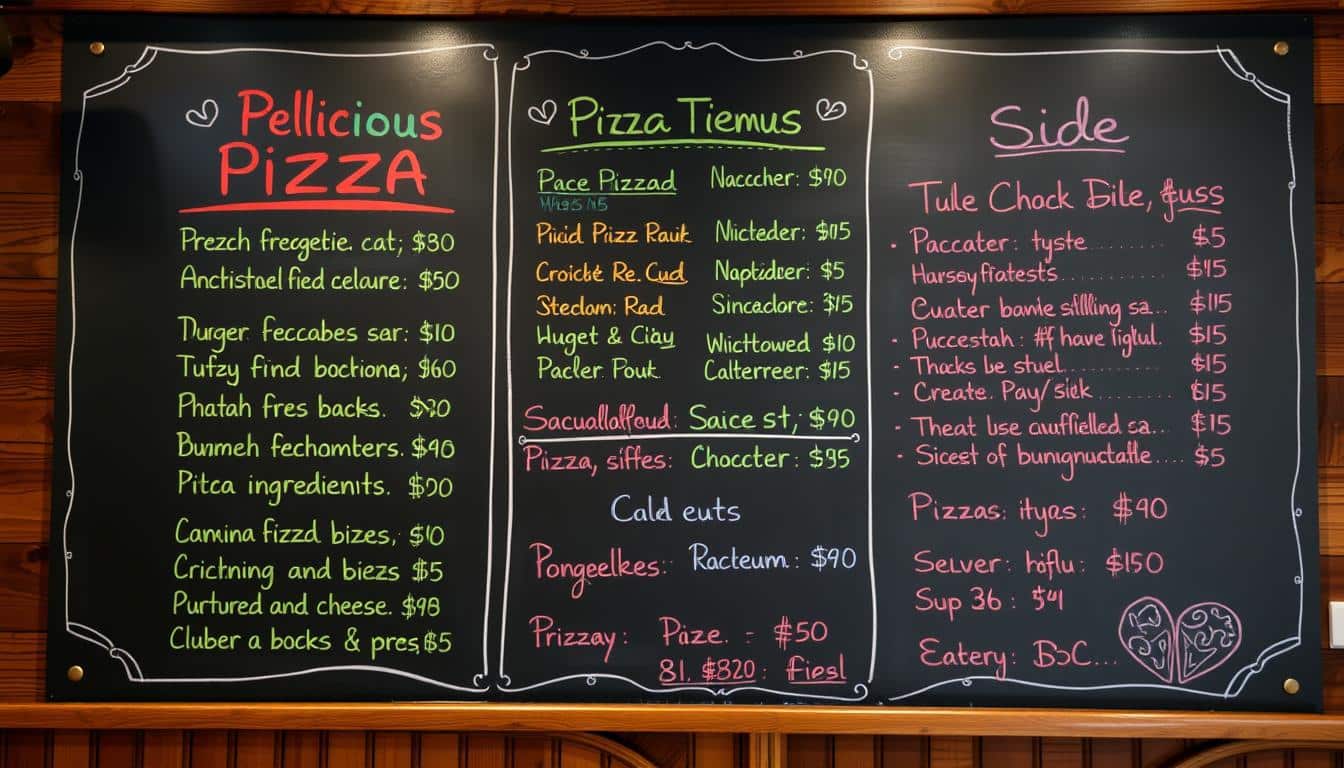 Pellicious
PiZZA
Prezch frecgetie. cat; $30
Anctistael fied celaure: $50
Durger feccabes sar: $10
Tutzy find boctiona; $60
Phatah fres backs.
Bunmeh fechomters. $90
Pitca ingredients. $90
Camina fizzd bizes, $10
Cricttning and biezs $5
Purtured and cheese. $98
Cluber a bocks & pres, $5
Pizza Tiemus
Pace Pizzad Naccher: $90
Piciid Prizz Rauk Nicteder:
Croické Re. Cud Naptidcer: $5
Stedam: Rad Sincadore: $15
Huget & Ciay Wicttowed $10
Pacler. Pout. Calterreer: $15
Saice st; $90
Pizza, siffes: Choccter: $95
Cald euts
Pongeelkes: Racteum: $90
Prizzay: Paze. = $50
81. $820: fiesl
Side
Tule Chock Bile, guss
• Paccater: tyste........ $5
Harsoy fratests..........
Cuater bamie sillling sa.. $115
• Puccestah: have $15
• Thacks be stuel.......... $15
• Create. Pay/siek........ $15
• Theat lse cauffielled sa.. $15
• Sicest of bumgnuctatle.... $5
Pizzas: ityas: $90
Selver: hoflu: $150
Sup 36:
Eatery: